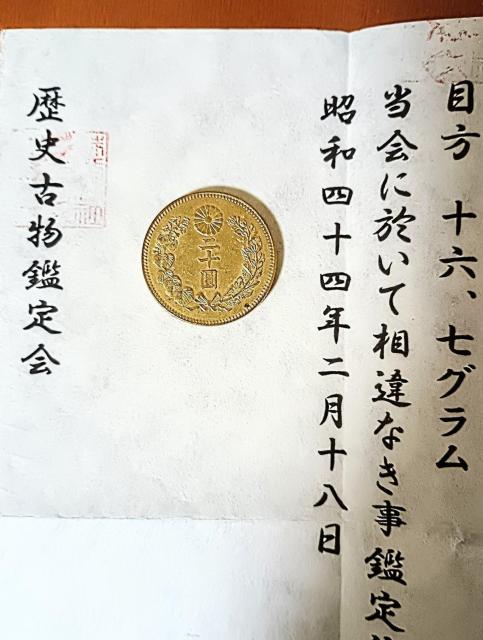 目方 十六、七グラム
当会に於いて相違なき事鑑定
昭和四十四年二月十八日
二十圓
歴史古物鑑定会